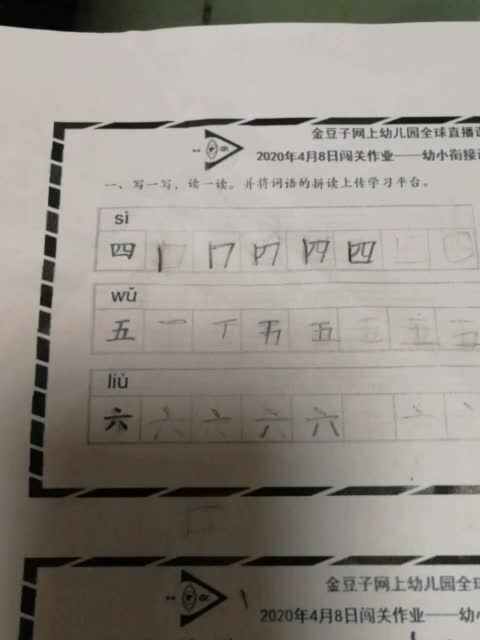 金豆子网上幼儿园全球直播
2020年4月8日闯关作业——幼小衔接
一、写一写，读一读。并将词语的拼读上传学习平台。
sì
四 丨 冂 四 四 四
wǔ
五 一 丅 五 五 五 五 五
liù
六 六 六 六 六
金豆子网上幼儿园全
2020年4月8日闯关作业——幼